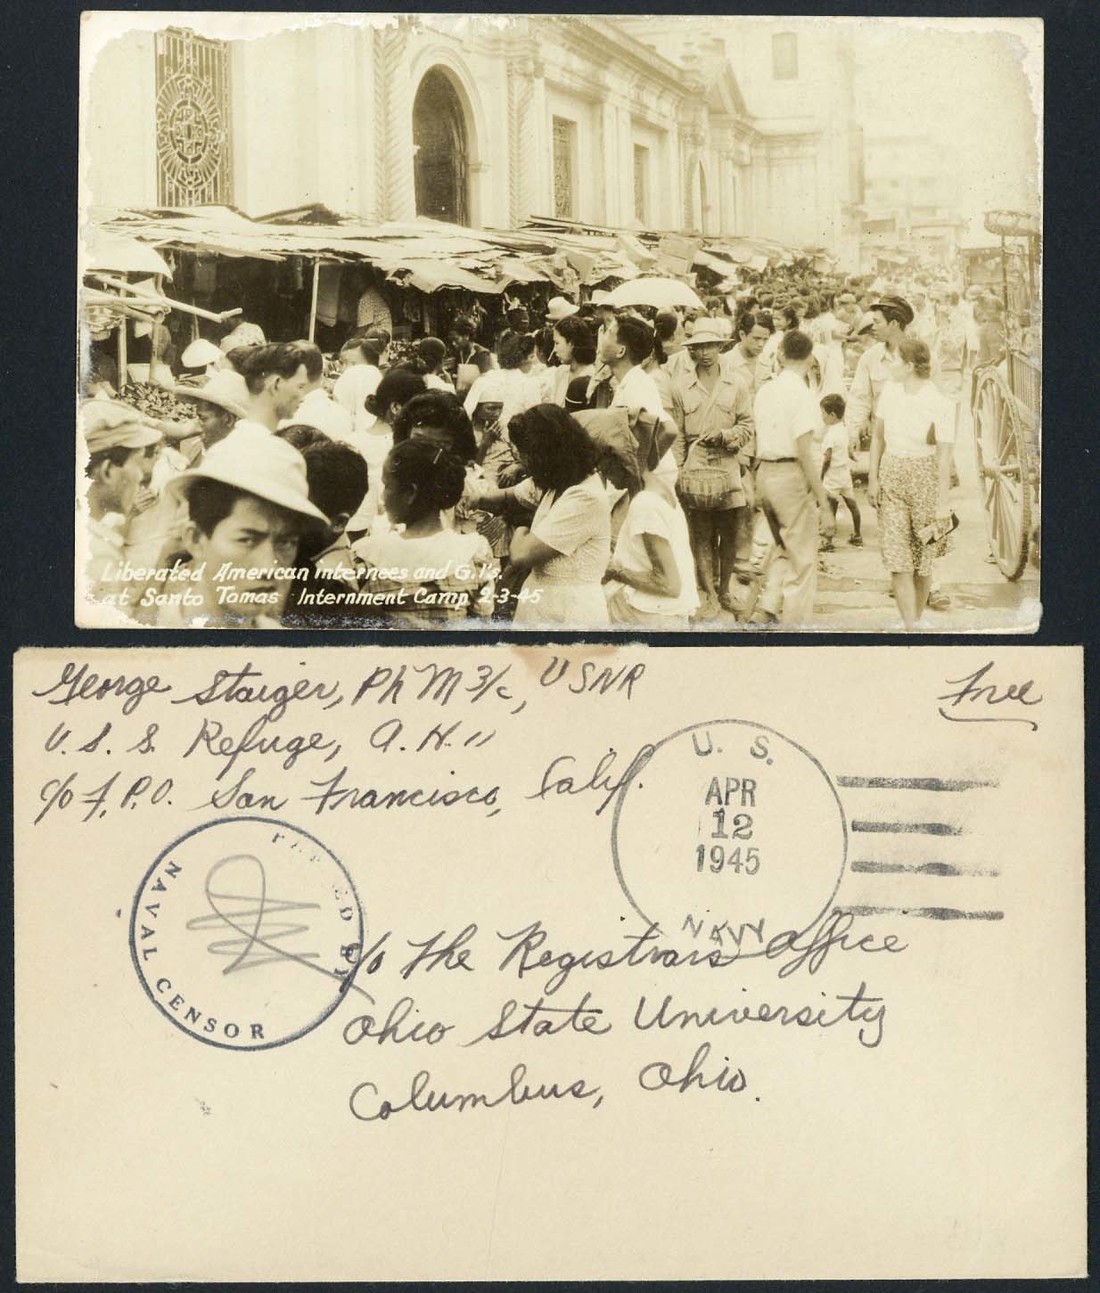 Liberated American internees and G.I's.
at Santo Tomas Internment Camp 2-3-45
George Staiger, PhM 3/c, USNR
Free
U.S.S. Refuge, A.H. 11
c/o F.P.O. San Francisco, Calif.
U. S.
APR
12
1945
NAVY
PASSED BY
NAVAL CENSOR
c/o The Registrars Office
Ohio State University
Columbus, Ohio.